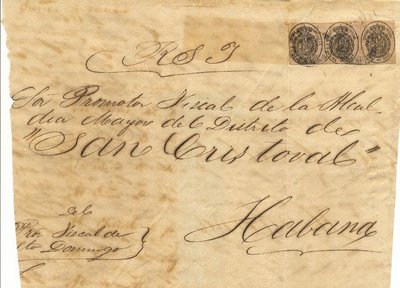 R S I
Sor Promotor Fiscal de la Alcal-
dia Mayor del Distrito de
"San Cristoval"
Habana
del
Pror Fiscal de
Sto Domingo